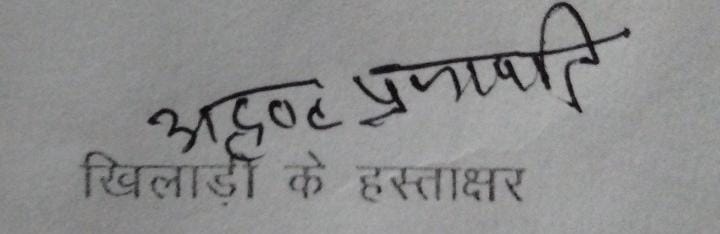 प्रजापति
खिलाड़ी के हस्ताक्षर